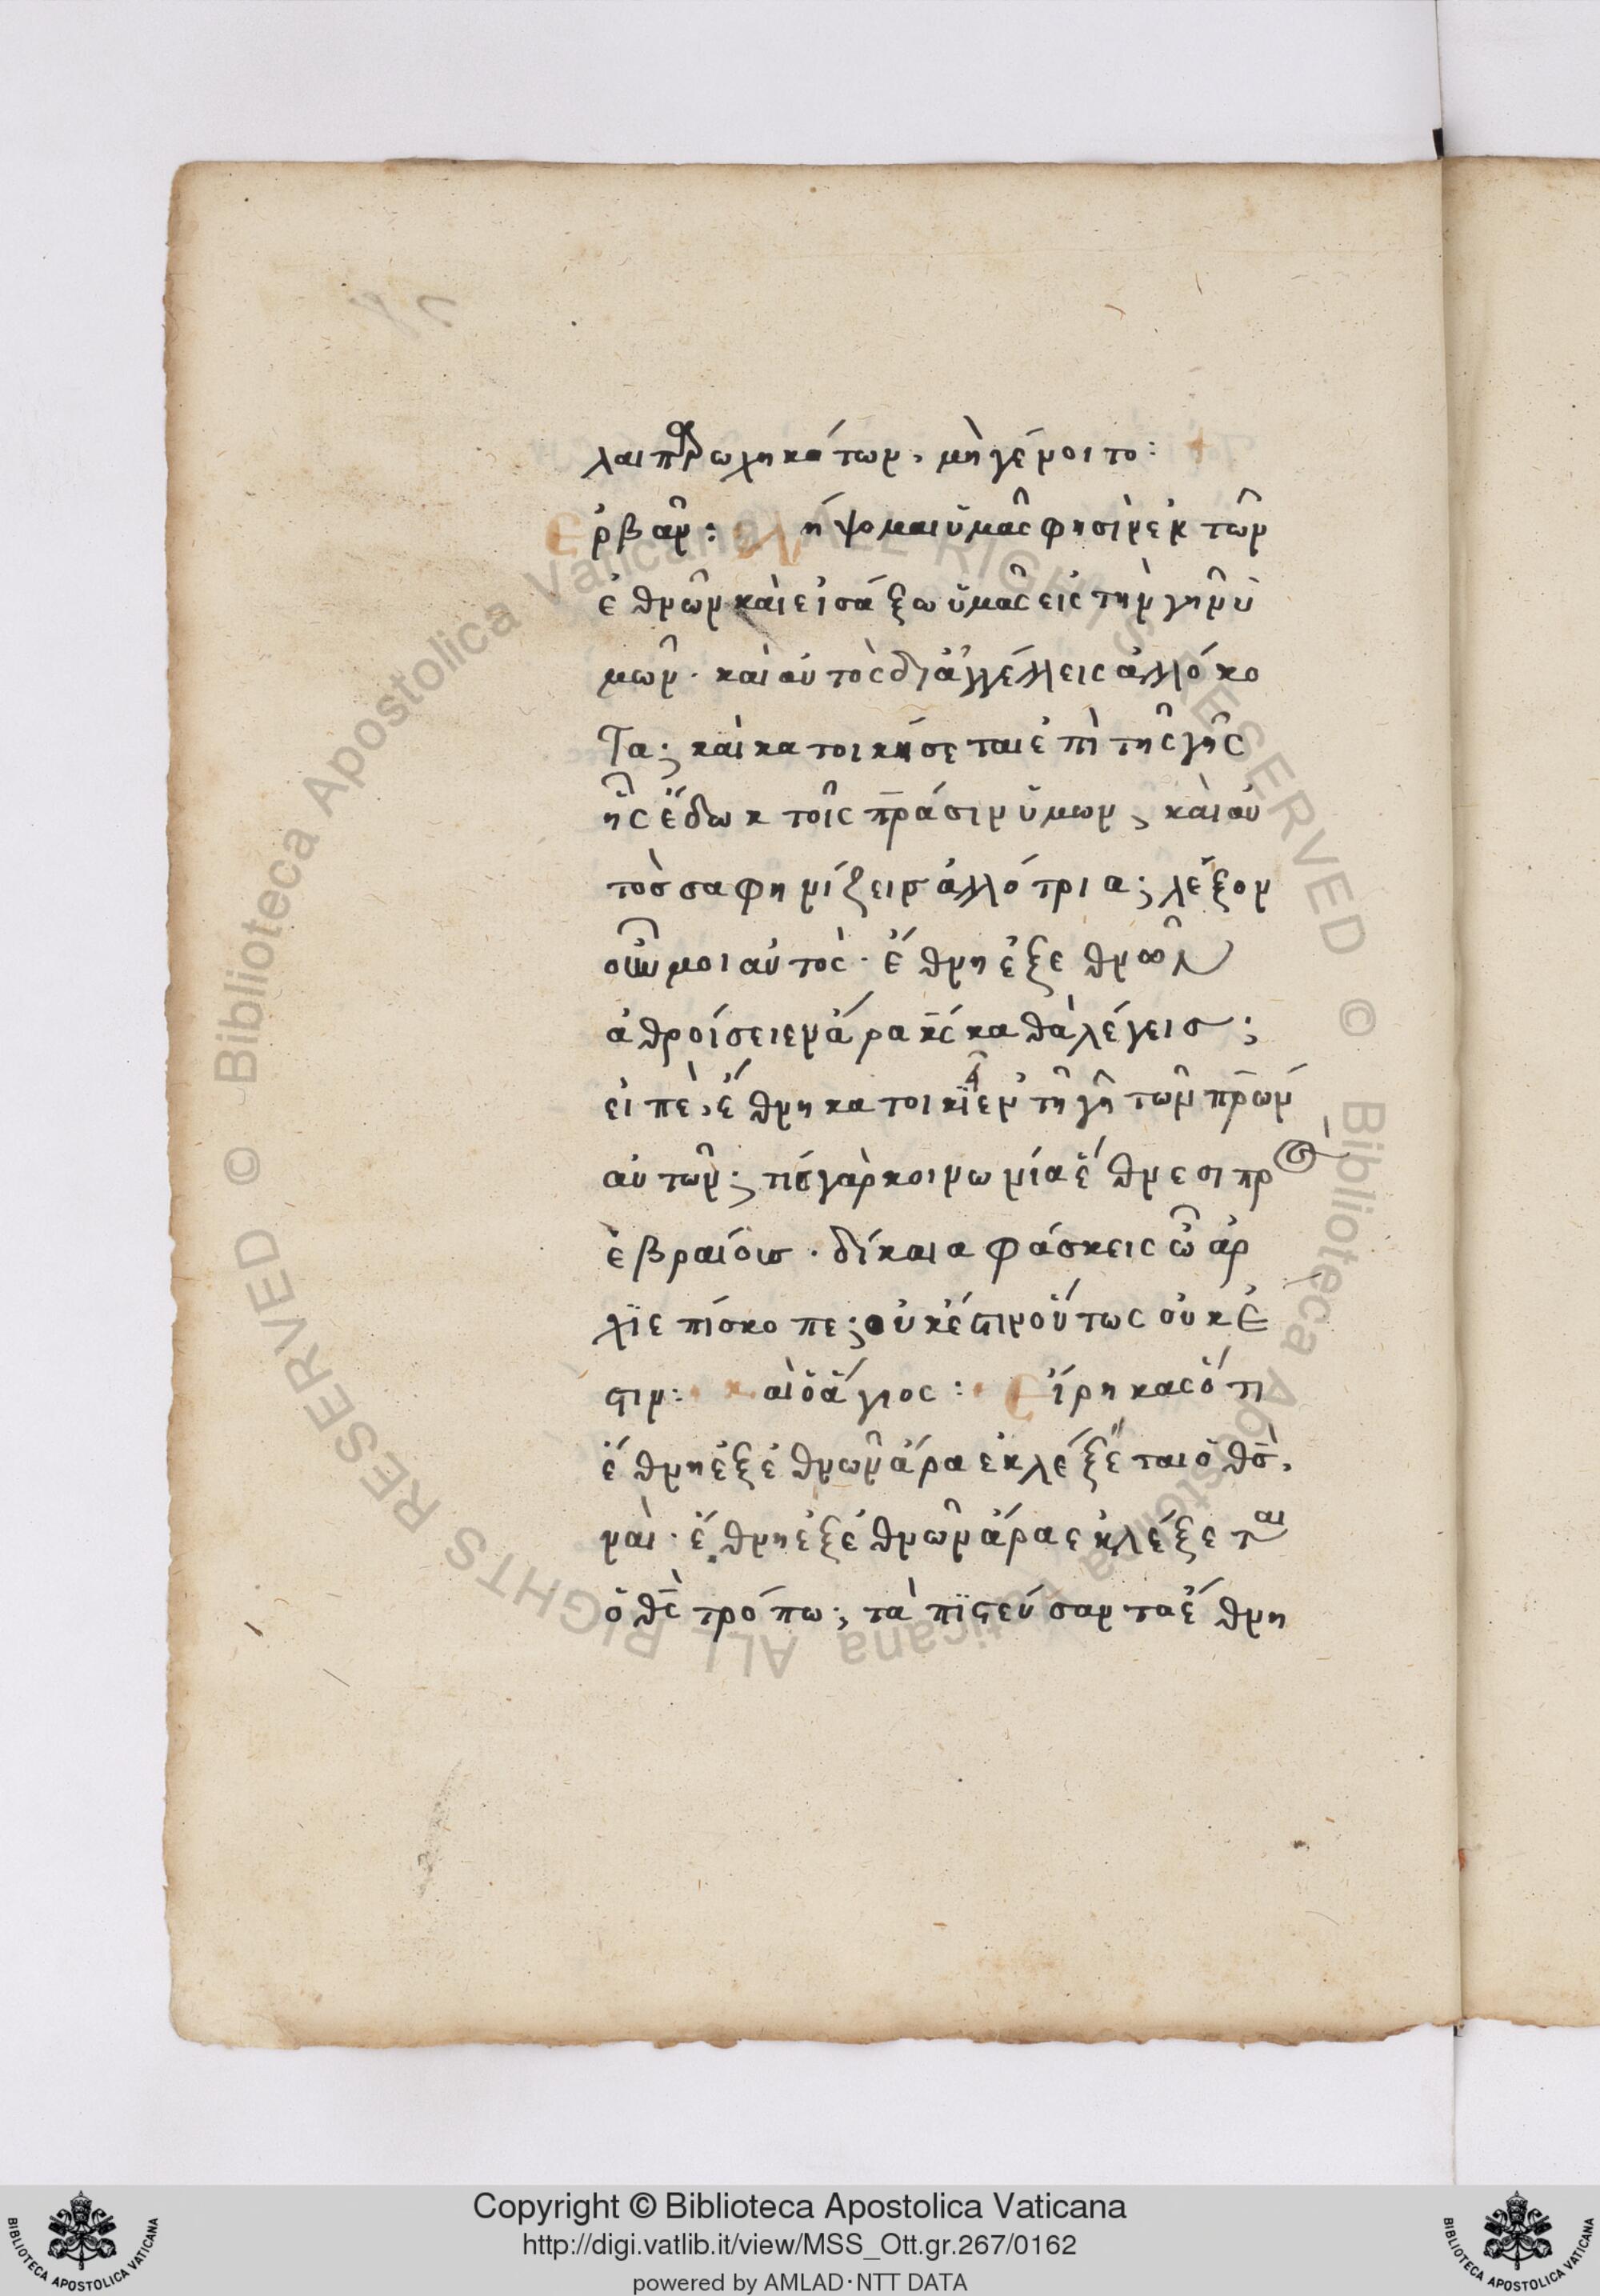 λαι παρωχηκότων, μὴ γένοιτο:
ἐρβὰν: λήψομαι ὑμᾶς φησὶν ἐκ τῶν
ἐθνῶν καὶ εἰσάξω ὑμᾶς εἰς τὴν γῆν ὑ
μῶν. καὶ αὐτὸς διαγγέλλεις ἀλλόκο
τα; καὶ κατοικήσεται ἐπὶ τῆς γῆς
ἧς ἔδωκ τοῖς πρ̅άσιν ὑμων; καὶ αὐ
τὸσ σαφηνίζειν ἀλλότρια; λέξον
οὖν μοι αὐτὸς. ἔθνη ἐξ ἐθνῶν
ἀθροίσειεν ἄρα κ̅ς καθὰ λέγεισ;
εἰπὲ, ἔθνη κατοικιεῖ ἐν τῇ γῇ τῶν πρ̅ων
αὐτῶν; τίς γὰρ κοινωνία ἔθνεσι πρὸς
ἑβραίοισ. δίκαια φάσκεις ὦ ἀρ
χϊεπίσκοπε; οὐκ ἔστιν οὕτως οὐκ ἔ
στιν: καὶ ὁ ἅγιος: Εἴρηκας ὅτι
ἔθνη ἐξ ἐθνῶν ἄρα ἐκλέξεται ὁ θσ̅,
ναὶ. ἔθνη ἐξ ἐθνῶν ἄρα ἐκλέξεται
ὁ θς̅ τρόπω; τὰ πϊστεύσαντα ἔθνη
Copyright © Biblioteca Apostolica Vaticana
http://digi.vatlib.it/view/MSS_Ott.gr.267/0162
powered by AMLAD·NTT DATA
BIBLIOTECA APOSTOLICA VATICANA
BIBLIOTECA APOSTOLICA VATICANA
© Biblioteca Apostolica Vaticana ALL RIGHTS RESERVED © Biblioteca Apostolica Vaticana ALL RIGHTS RESERVED